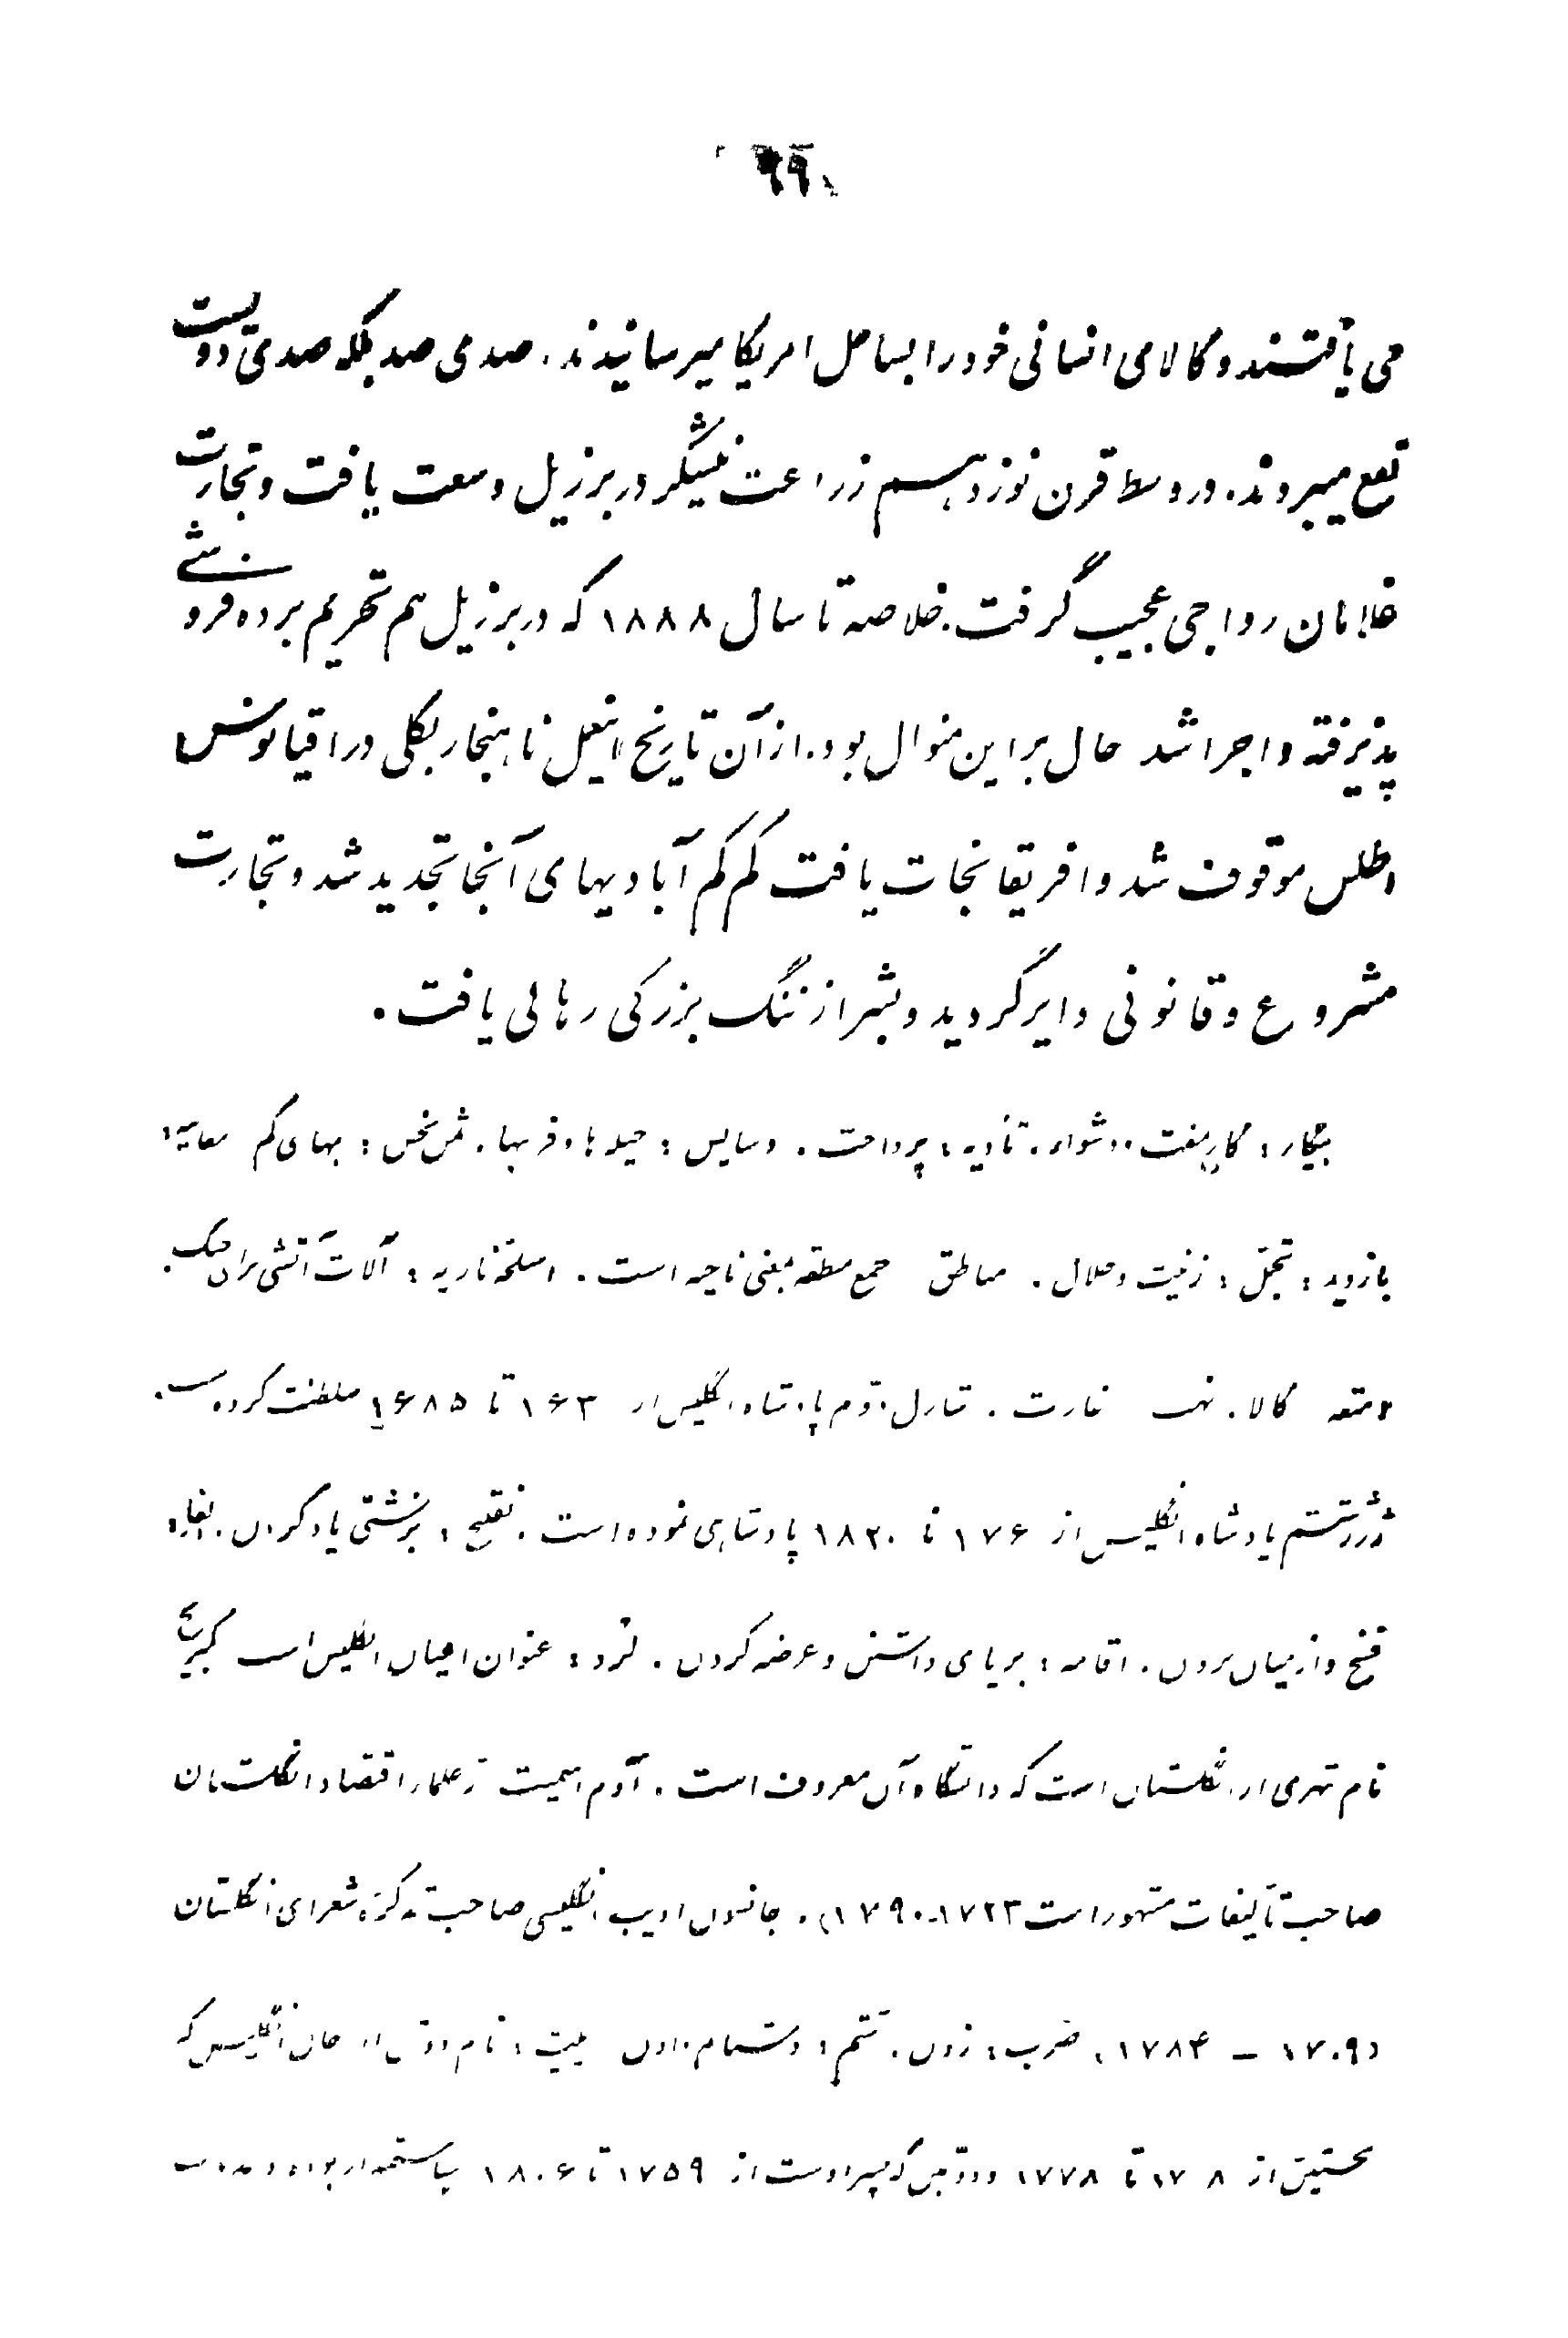 ۶۹
می یافتند و کالای انسانی خود را بساحل امریکا میرسانیدند. صدی صد بلکه صدی دویست
نفع میبردند. در وسط قرن نوزدهم زراعت نیشکر در برزیل وسعت یافت و تجارت
غلامان رواجی عجیب گرفت. خلاصه تا سال ۱۸۸۸ که در برزیل هم تحریم برده فروشی
پذیرفته و اجرا شد حال بر این منوال بود. از آن تاریخ این عمل ناهنجار بکلی در اقیانوس
اطلس موقوف شد و افریقا نجات یافت کم کم آبادیهای آنجا تجدید شد و تجارت
مشروع و قانونی دایر گردید و بشر از ننگ بزرگی رهائی یافت.
بیگار: کار مفت و دشوار. تأدیه: پرداخت. دسایس: حیله ها و فریبها. ثمن بخس: بهای کم معاینه:
بازدید: تجمّل: زینت و جلال. مناطق جمع منطقه بمعنی ناحیه است. اسلحهٔ ناریه: آلات آتشی برای جنگ.
امتعه کالا. نهب غارت. شارل دوم پادشاه انگلیس از ۱۶۳ تا ۱۶۸۵ سلطنت کرده است.
ژرژ ششم پادشاه انگلیس از ۱۷۶ تا ۱۸۲۰ پادشاهی نموده است. تقبیح: بزشتی یاد کردن. الغاء:
فسخ و از میان بردن. اقامه: برپای داشتن و عرضه کردن. لرد: عنوان اعیان انگلیس است کمبریج
نام شهری از انگلستان است که دانشگاه آن معروف است. آدم اسمیت از علماء اقتصاد انگلستان
صاحب تألیفات مشهور است ۱۷۲۳-۱۷۹۰). جانسون ادیب انگلیسی صاحب تذکره شعرای انگلستان
(۱۷۰۹ - ۱۷۸۴. ضرب: زدن. شتم: دشنام دادن پیت: نام دو تن از رجال انگلیس که
نخستین از ۱۷۰۸ تا ۱۷۷۸ و دومین که پسر اوست از ۱۷۵۹ تا ۱۸۰۶ سیاستمدار بوده